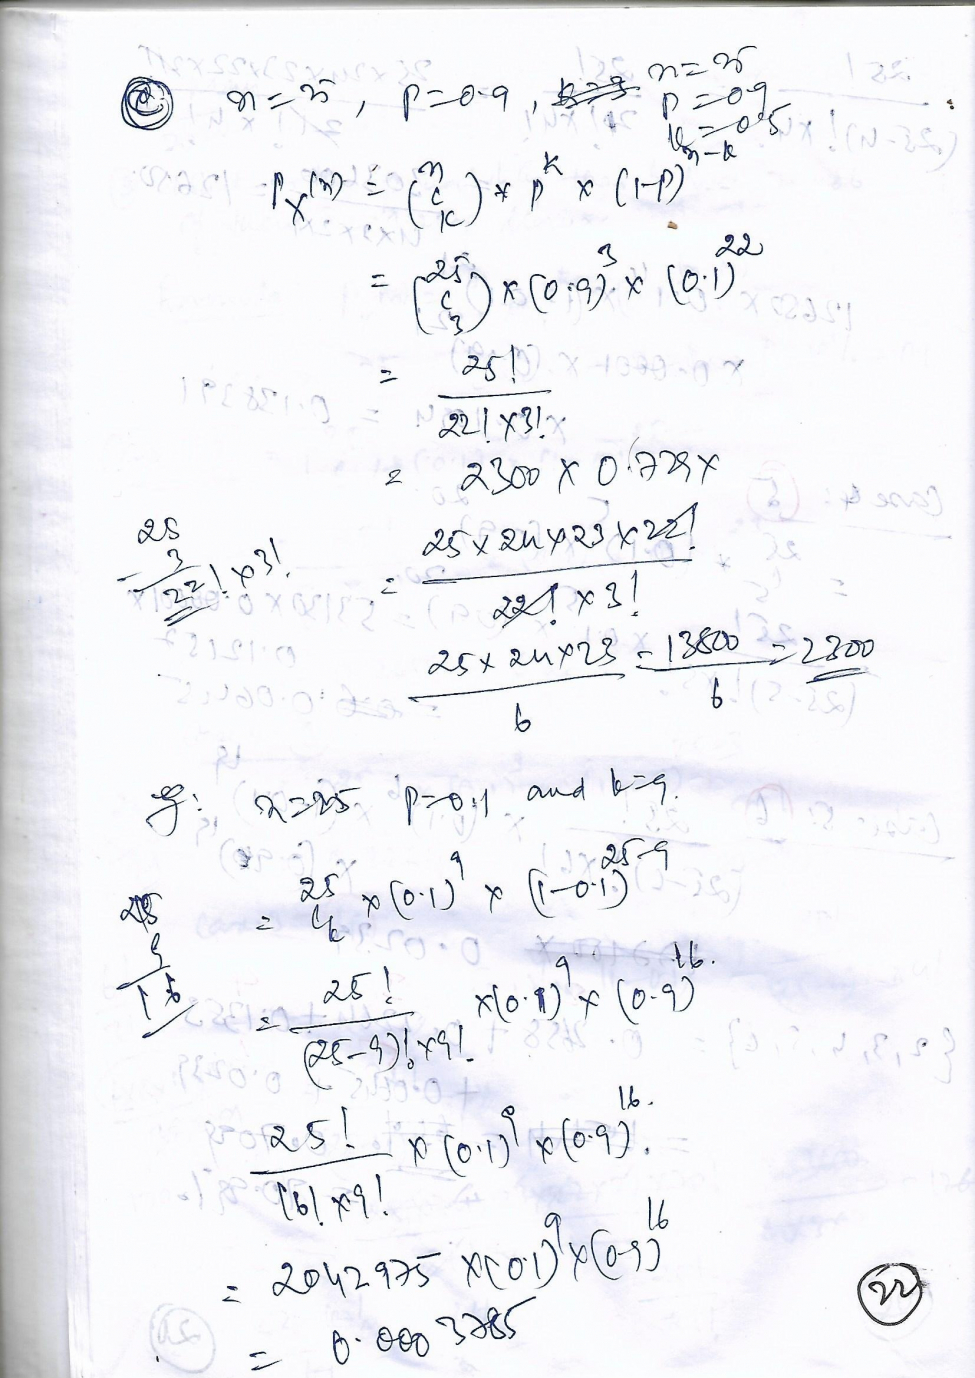 n=25, p=0.9,
n=25
p=0.9
k=0.5
P_X(n) = (n c k) × p^k × (1-p)^n-k
= (25 c 3) × (0.9)^3 × (0.1)^22
= 25! / 22! × 3!
= 2300 × 0.729 ×
25
3
22! × 3!
= 25 × 24 × 23 × 22! / 22! × 3!
25 × 24 × 23 / 6 = 13800 / 6 = 2300
n=25 p=0.1 and k=9.
= 25 c k × (0.1)^9 × (1-0.1)^25-9
25
9
16
= 25! / (25-9)! × 9! × (0.1)^9 × (0.9)^16.
25! / 16! × 9! × (0.1)^9 × (0.9)^16.
= 2042975 × (0.1)^9 × (0.9)^16
= 0.0003785
22